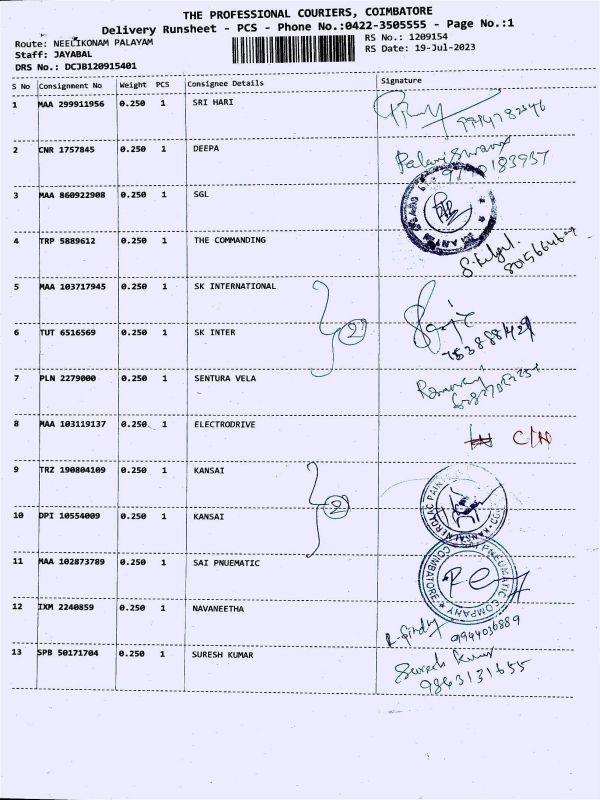 THE PROFESSIONAL COURIERS, COIMBATORE
Delivery Runsheet - PCS - Phone No.:0422-3505555 - Page No.:1
Route: NEELIKONAM PALAYAM
RS No.: 1209154
Staff: JAYABAL
RS Date: 19-Jul-2023
DRS No.: DCJB120915401
S No Consignment No Weight PCS Consignee Details Signature
1 MAA 299911956 0.250 1 SRI HARI
2 CNR 1757845 0.250 1 DEEPA
3 MAA 860922908 0.250 1 SGL
4 TRP 5889612 0.250 1 THE COMMANDING
5 MAA 103717945 0.250 1 SK INTERNATIONAL
2
6 TUT 6516569 0.250 1 SK INTER
7 PLN 2279000 0.250 1 SENTURA VELA
8 MAA 103119137 0.250 1 ELECTRODRIVE C/N
9 TRZ 190804109 0.250 1 KANSAI
2
10 DPI 10554009 0.250 1 KANSAI
11 MAA 102873789 0.250 1 SAI PNUEMATIC
SAI PNEUMATIC COMPANY COIMBATORE
12 IXM 2240859 0.250 1 NAVANEETHA
9944036889
13 SPB 50171704 0.250 1 SURESH KUMAR Suresh Kumar
9863131655